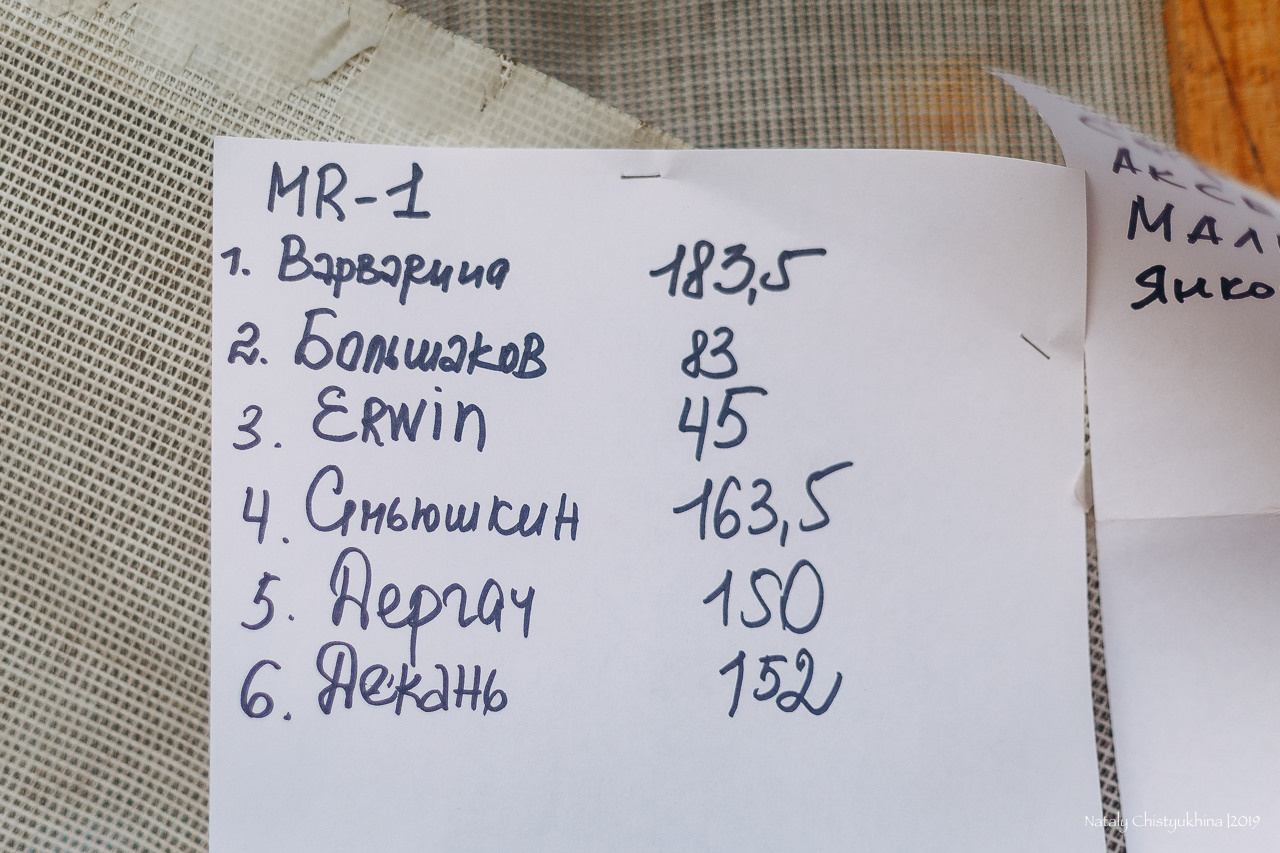 MR-1
1. Варварина 183,5
2. Большаков 83
3. ERWin 45
4. 163,5
5. Дергач 150
6. Декань 152
МАЛ
ЯНКО
Nataly Chistyukhina |2019